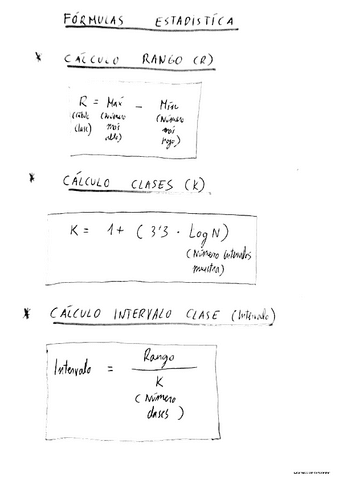 FÓRMULAS ESTADISTÍCA
* CÁLCULO RANGO (R)
R = Máx – Mín
(Número más alto) (Número más bajo)
* CÁLCULO CLASES (K)
K = 1 + ( 3'3 · Log N )
(Número intervalos muestra)
* CÁLCULO INTERVALO CLASE (Intervalo)
Intervalo = Rango
K
( Número
clases )